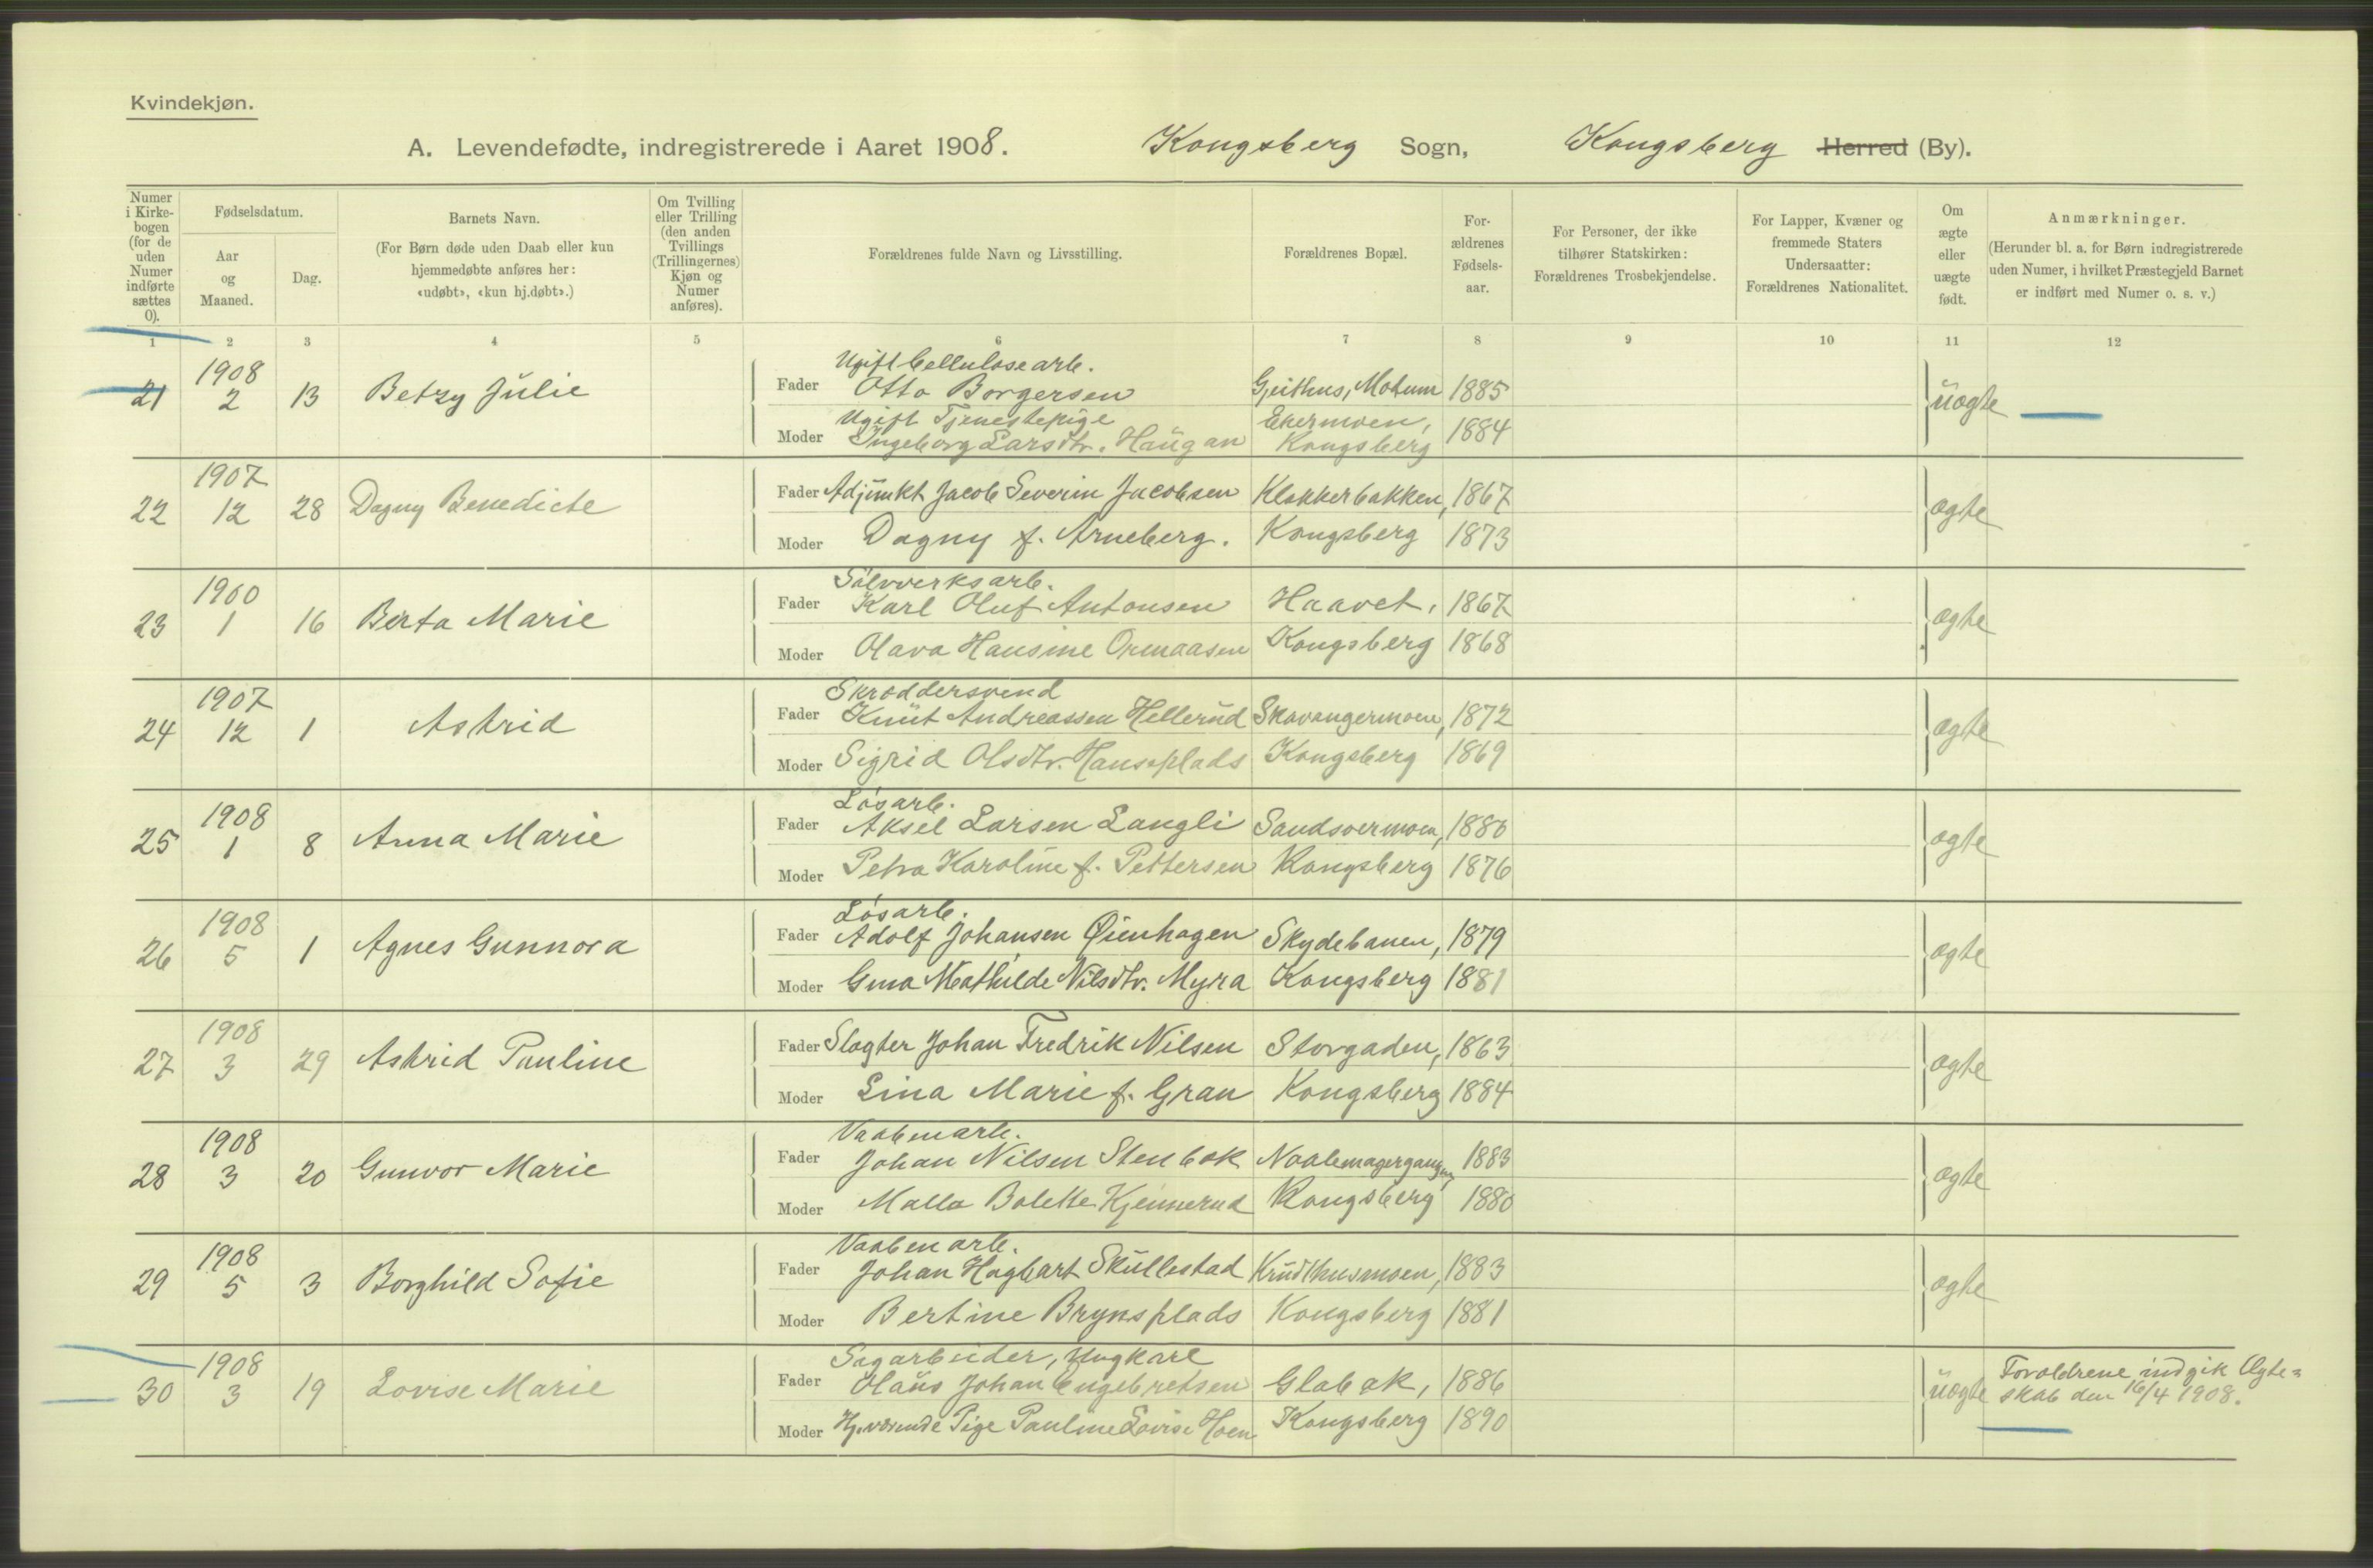 Kvindekjøn.
A. Levendefødte, indregistrerede i Aaret 1908. Kongsberg Sogn, Kongsberg Herred (By).
Numer i Kirke-bogen (for de uden Numer indførte sættes 0).
Fødselsdatum.
Aar og Maaned.
Dag.
Barnets Navn.
(For Børn døde uden Daab eller kun hjemmedøbte anføres her: «udøbt», «kun hj.døbt».)
Om Tvilling eller Trilling (den anden Tvillings (Trillingernes) Kjøn og Numer anføres).
Forældrenes fulde Navn og Livsstilling.
Forældrenes Bopæl.
For-ældrenes Fødsels-aar.
For Personer, der ikke tilhører Statskirken: Forældrenes Trosbekjendelse.
For Lapper, Kvæner og fremmede Staters Undersaatter: Forældrenes Nationalitet.
Om ægte eller uægte født.
Anmærkninger.
(Herunder bl. a. for Børn indregistrerede uden Numer, i hvilket Præstegjeld Barnet er indført med Numer o. s. v.)
1 2 3 4 5 6 7 8 9 10 11 12
21 1908 2 13 Betzy Julie
Ugift Cellulosearb.
Fader Otto Borgersen Gjeithus, Modum 1885
uægte
Ugift Tjenestepige
Moder Ingeborg Larsdtr. Haugan Ekermoen, Kongsberg 1884
22 1907 12 28 Dagny Benedicte
Fader Adjunkt Jacob Severin Jacobsen Klokkerbakken, 1867
ægte
Moder Dagny f. Arneberg. Kongsberg 1873
23 1900 1 16 Berta Marie
Sølvverksarb.
Fader Karl Oluf Antonsen Haavet, 1867
ægte
Moder Olava Hansine Ormaasen Kongsberg 1868
24 1907 12 1 Astrid
Skræddersvend
Fader Knut Andreassen Hellerud Skavangermoen, 1872
ægte
Moder Sigrid Olsdtr. Hansplads Kongsberg 1869
25 1908 1 8 Anna Marie
Løsarb.
Fader Aksel Larsen Langli Sandsværmoen, 1880
ægte
Moder Petra Karoline f. Pettersen Kongsberg 1876
26 1908 5 1 Agnes Gunnora
Løsarb.
Fader Adolf Johansen Øienhagen Skydebanen, 1879
ægte
Moder Gina Mathilde Nilsdtr. Myra Kongsberg 1881
27 1908 3 29 Astrid Pauline
Fader Slagter Johan Fredrik Nilsen Storgaden, 1863
ægte
Moder Lina Marie f. Gran Kongsberg 1884
28 1908 3 20 Gunvor Marie
Vaabenarb.
Fader Johan Nilsen Stenbæk Naalemagergangen, 1883
ægte
Moder Malla Bolette Kjennerud Kongsberg 1880
29 1908 5 3 Borghild Sofie
Vaabenarb.
Fader Johan Hagbart Skullestad Krudthusmoen, 1883
ægte
Moder Bertine Brynsplads Kongsberg 1881
30 1908 3 19 Lovise Marie
Sagarbeider, Ungkarl
Fader Olaus Johan Engebretsen Glabak, 1886
uægte Forældrene indgik Ægte=
skab den 16/4 1908.
Moder Hj.værende Pige Pauline Lovise Hoen Kongsberg 1890